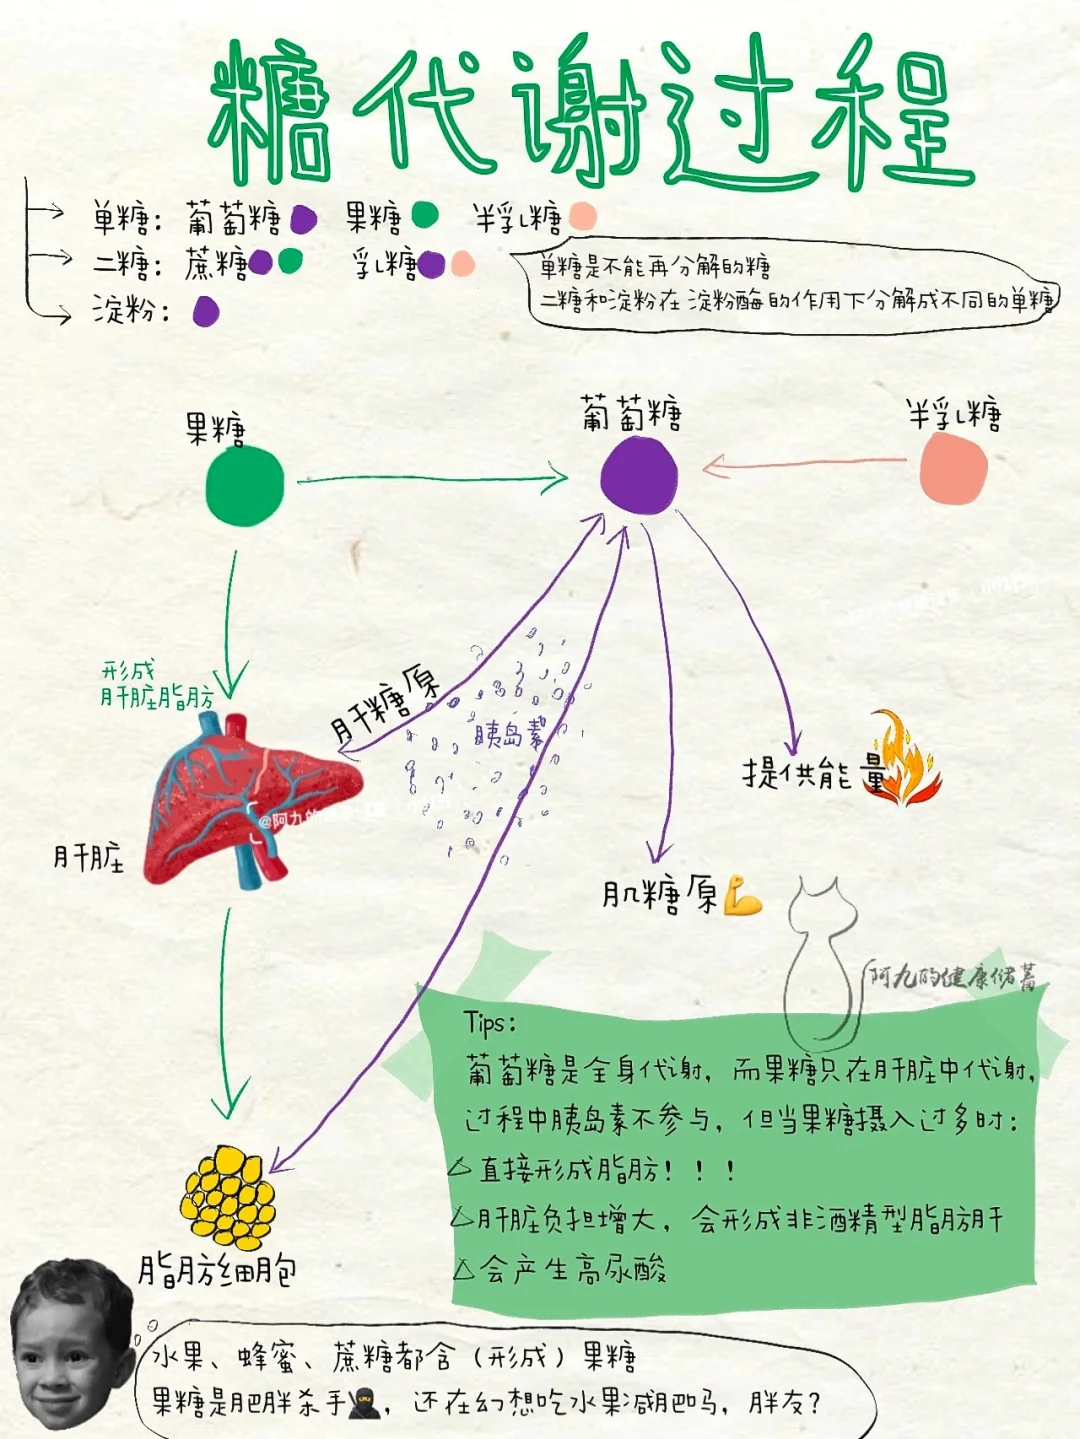 糖代谢过程
单糖：葡萄糖 果糖 半乳糖
二糖：蔗糖 乳糖
淀粉：
单糖是不能再分解的糖
二糖和淀粉在淀粉酶的作用下分解成不同的单糖
果糖
葡萄糖
半乳糖
形成
肝脏脂肪
肝糖原
胰岛素
提供能量
@阿九的
肝脏
肌糖原
阿九的健康储蓄
Tips：
葡萄糖是全身代谢，而果糖只在肝脏中代谢，
过程中胰岛素不参与，但当果糖摄入过多时：
△直接形成脂肪！！！
△肝脏负担增大，会形成非酒精型脂肪肝
△会产生高尿酸
脂肪细胞
水果、蜂蜜、蔗糖都含（形成）果糖
果糖是肥胖杀手🥷，还在幻想吃水果减肥吗，胖友？